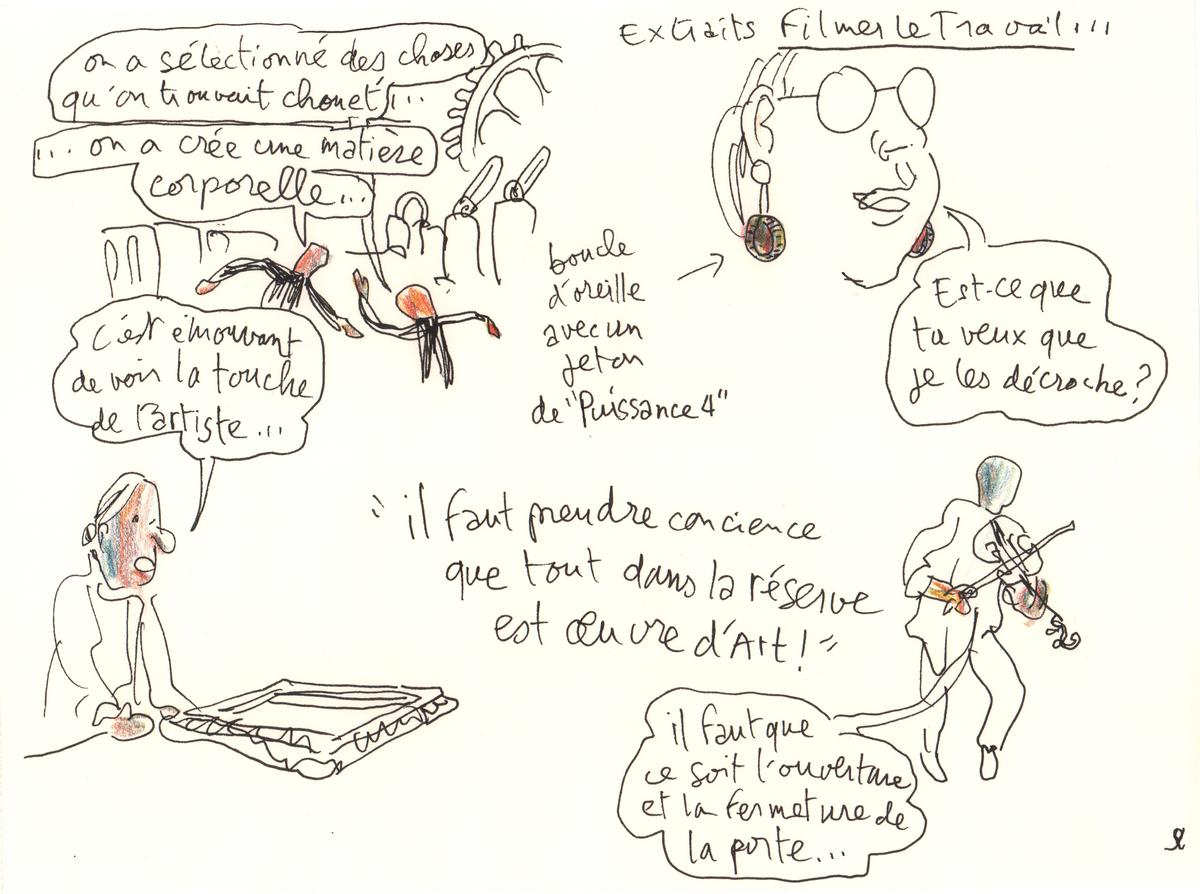 Extraits Filmer le Travail...
on a sélectionné des choses
qu'on trouvait chouet'...
... on a crée une matière
corporelle...
boucle
d'oreille
avec un
jeton
de "Puissance 4"
Est-ce que
tu veux que
je les décroche?
C'est émouvant
de voir la touche
de l'artiste...
"il faut prendre concience
que tout dans la réserve
est œuvre d'Art!"
il faut que
ce soit l'ouverture
et la fermeture de
la porte...